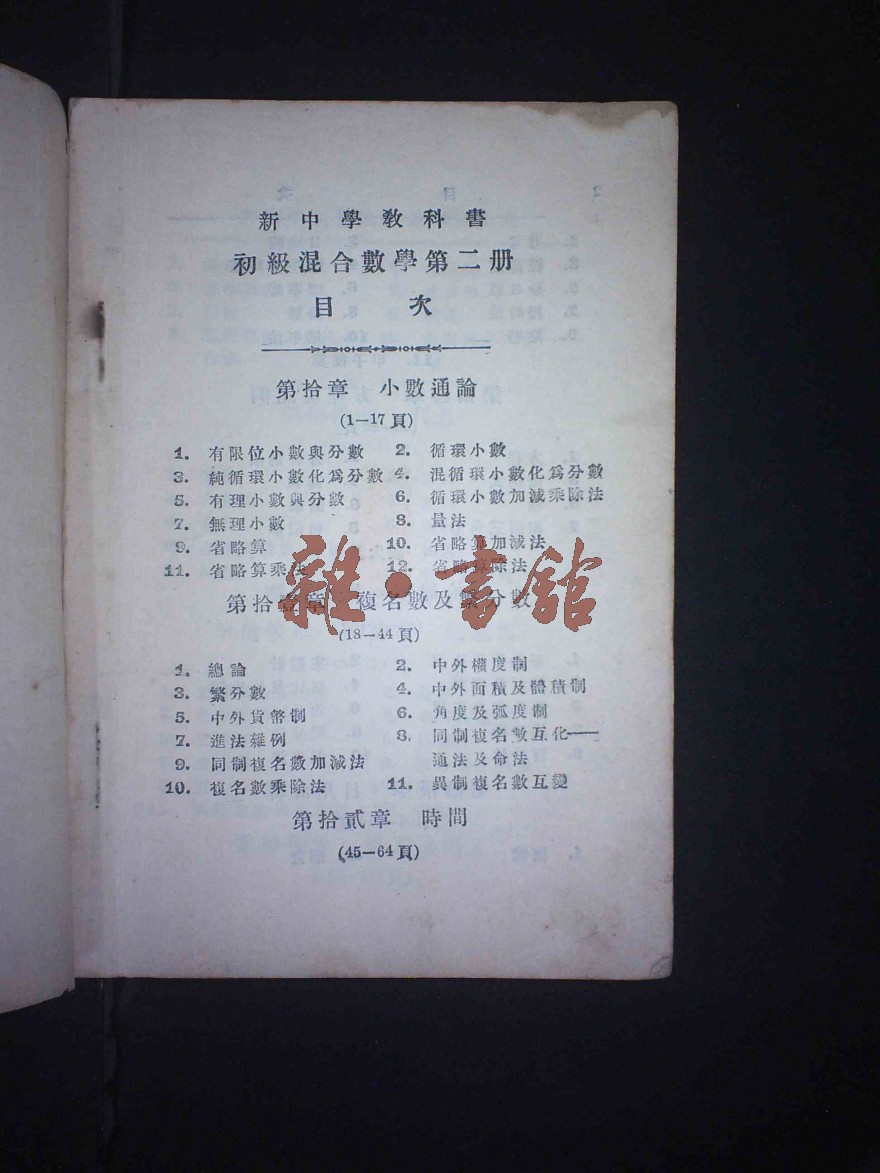 新中學教科書
初級混合數學第二册
目 次
第拾章 小數通論
(1—17頁)
1. 有限位小數與分數 2. 循環小數
3. 純循環小數化爲分數 4. 混循環小數化爲分數
5. 有理小數與分數 6. 循環小數加減乘除法
7. 無理小數 8. 量法
9. 省略算 10. 省略算加減法
11. 省略算乘法 12. 省略算除法
雜·書舘
第拾壹章 複名數及繁分數
(18—44頁)
1. 總論 2. 中外權度制
3. 繁分數 4. 中外面積及體積制
5. 中外貨幣制 6. 角度及弧度制
7. 進法雜例 8. 同制複名數互化——
9. 同制複名數加減法 通法及命法
10. 複名數乘除法 11. 異制複名數互變
第拾貳章 時間
(45—64頁)